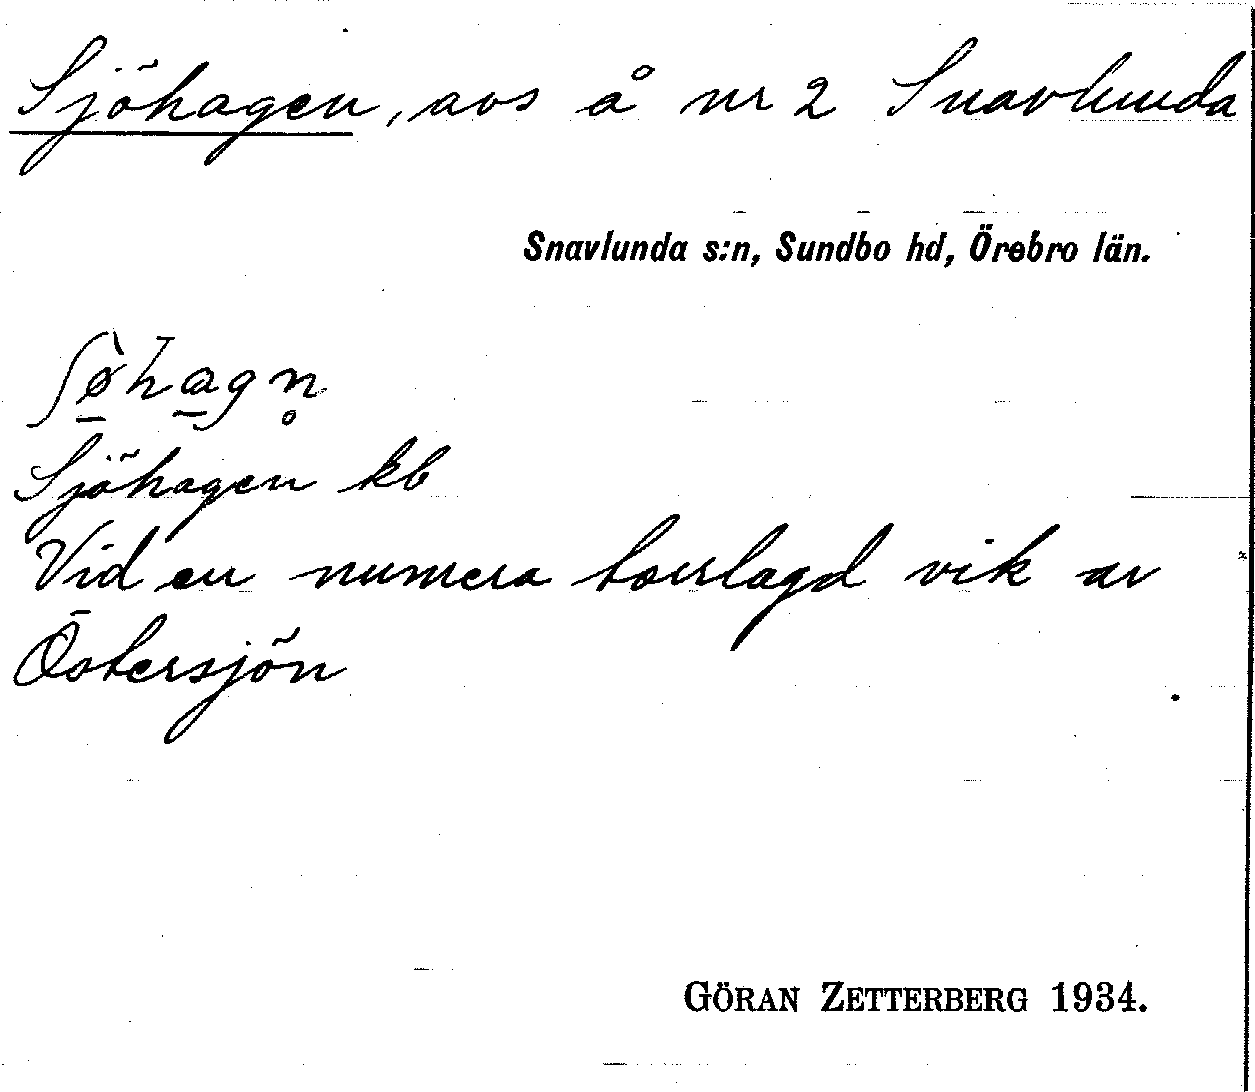 Sjöhagen, avs å nr 2 Snavlunda
Snavlunda s:n, Sundbo hd, Örebro län.
ʃø̠̀ha̠gn̥
Sjöhagen kb
Vid en numera torrlagd vik av
Östersjön
GÖRAN ZETTERBERG 1934.